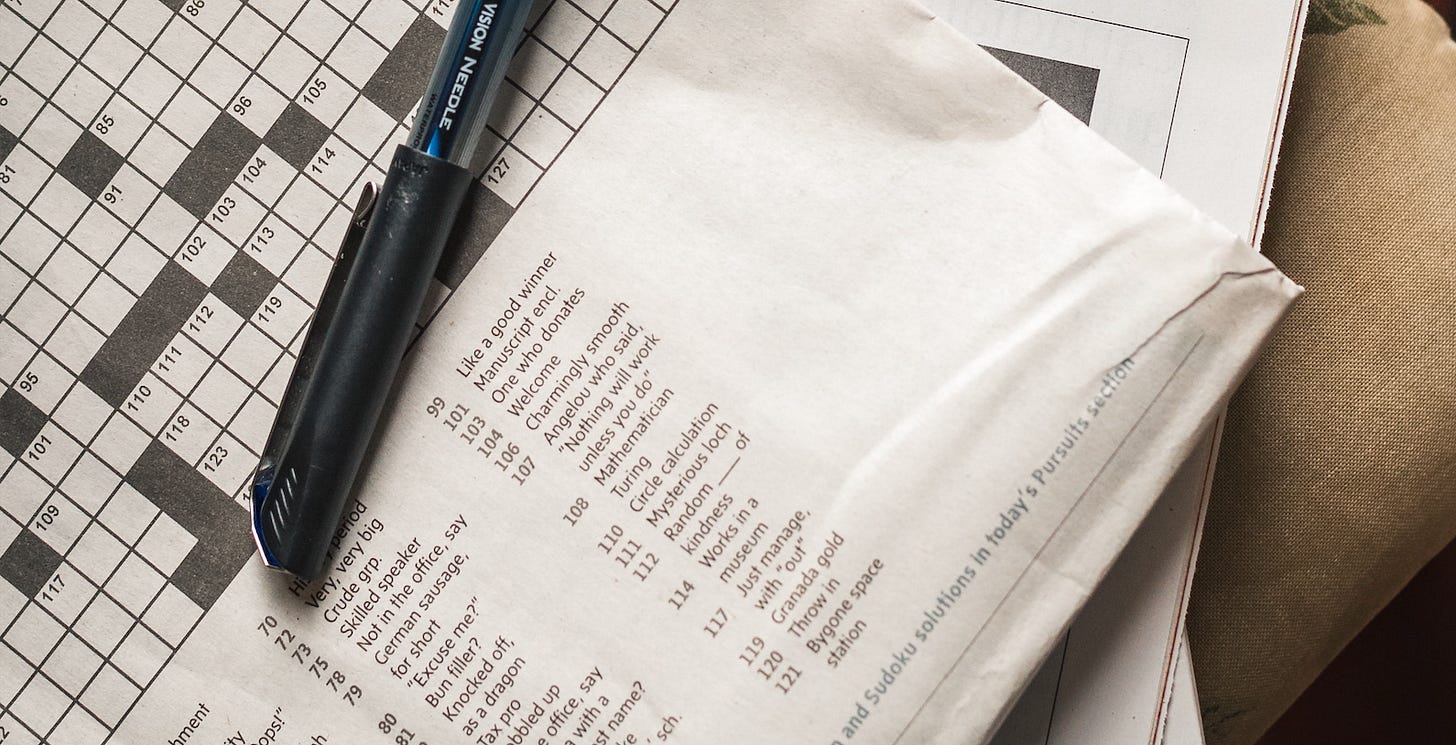 VISION NEEDLE
86
96
105
85
104
114
127
81
91
103
113
102
119
112
111
95
110
118
101
123
109
117
70 period
72 Very, very big
73 Crude grp.
75 Skilled speaker
78 Not in the office, say
79 German sausage,
for short
80 "Excuse me?"
81 Bun filler?
Knocked off,
as a dragon
Tax pro
up
office, say
with a
name?
sch.
99 Like a good winner
101 Manuscript encl.
103 One who donates
104 Welcome
106 Charmingly smooth
107 Angelou who said,
"Nothing will work
unless you do"
108 Mathematician
Turing
110 Circle calculation
111 Mysterious loch
112 Random ___ of
kindness
114 Works in a
museum
117 Just manage,
with "out"
119 Granada gold
120 Throw in
121 Bygone space
station
and Sudoku solutions in today's Pursuits section